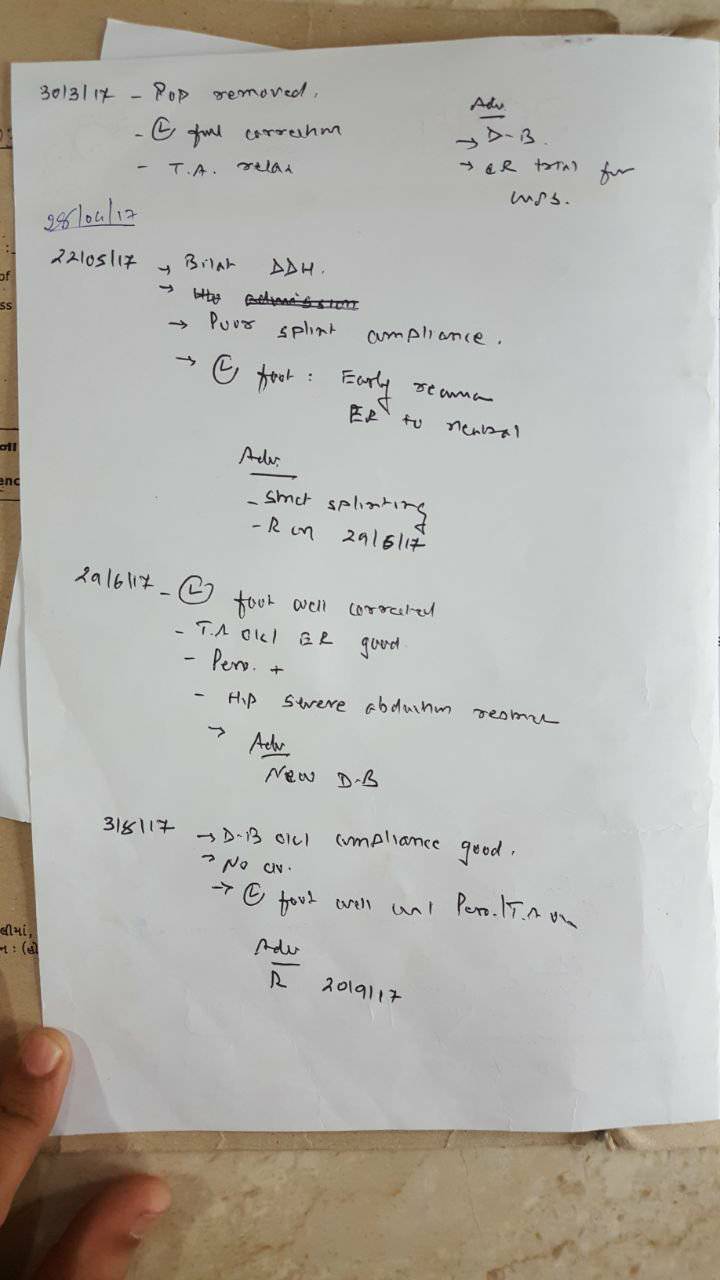 30/3/17 - POP removed.
- Ⓛ full correction
- T.A. relax
Adv
→ D-B.
→ CR trial for
hips.
28/04/17
22/05/17 → Bilat DDH.
→ admission
→ Poor splint compliance.
→ Ⓛ foot : Early
ER to neutral
Adv.
- Strict splinting
- R on 29/6/17
29/6/17 - Ⓛ foot well corrected
- T.A ok/ ER good
- Pero. +
- Hip severe abduction
→ Adv
New D-B
3/8/17 → D-B ok/ compliance good.
→ No
→ Ⓛ foot well Pero./T.A
Adv
R 20/9/17
લીમાં,